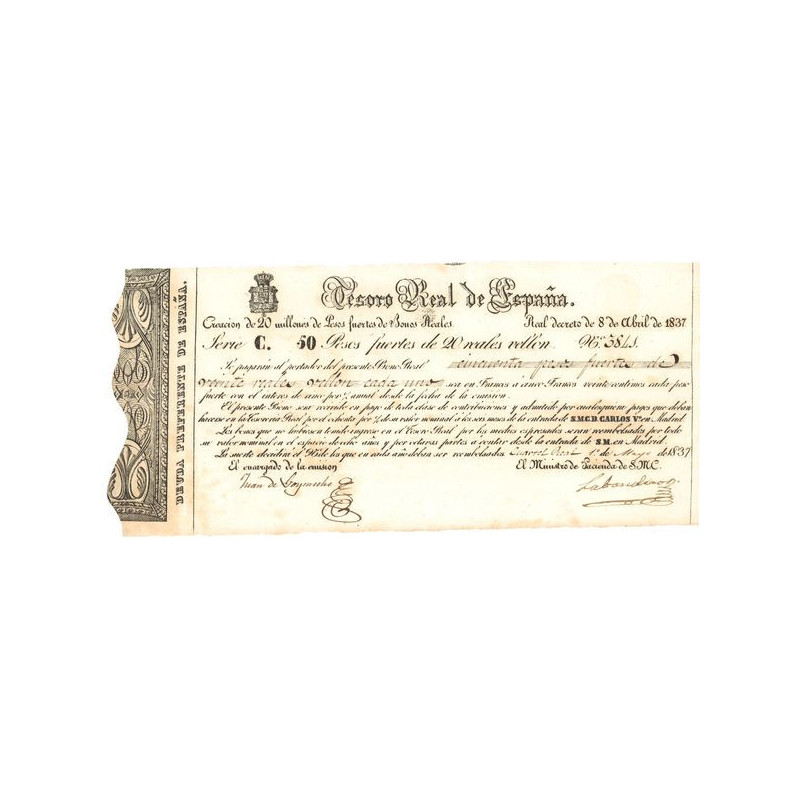 DEUDA PREFERENTE DE ESPAÑA.
Tesoro Real de España.
Creacion de 20 millones de Pesos fuertes de Bonos Reales. Real decreto de 8 de Abril de 1837
Serie C. 50 Pesos fuertes de 20 reales vellón. Nº 3841
Se pagarán al portador del presente Bono Real cincuenta pesos fuertes de
veinte reales vellon cada uno, sea en Francos a cinco Francos veinte centimos cada peso
fuerte con el interes de cinco por % anual desde la fecha de la emision.
El presente Bono sera recivido en pago de toda clase de contribuciones y admitido por cualesquiera pagos que deban
hacerse en la tesoreria Real por el ochenta por % de su valor nominal a los seis meses de la entrada de S.M.C.D. CARLOS Vº en Madrid
Los bonos que no hubiesen tenido ingreso en el Tesoro Real por los medios espresados seran rembolsados por todo
su valor nominal en el espacio de ocho años y por octavas partes a contar desde la entrada de S.M. en Madrid.
La suerte decidirá el Nº de los que en cada año deban ser rembolsados. Cuartel Real 1º de Mayo de 1837
El encargado de la emision El Ministro de Hacienda de S.M.C.
Juan de Labandero